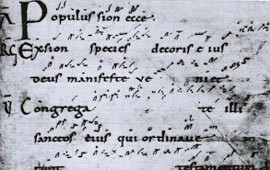 Populus sion ecce
Exsion species decoris eius
deus manifeste ve niet
Congrega te illi
sanctos eius qui ordinave
runt testamentum